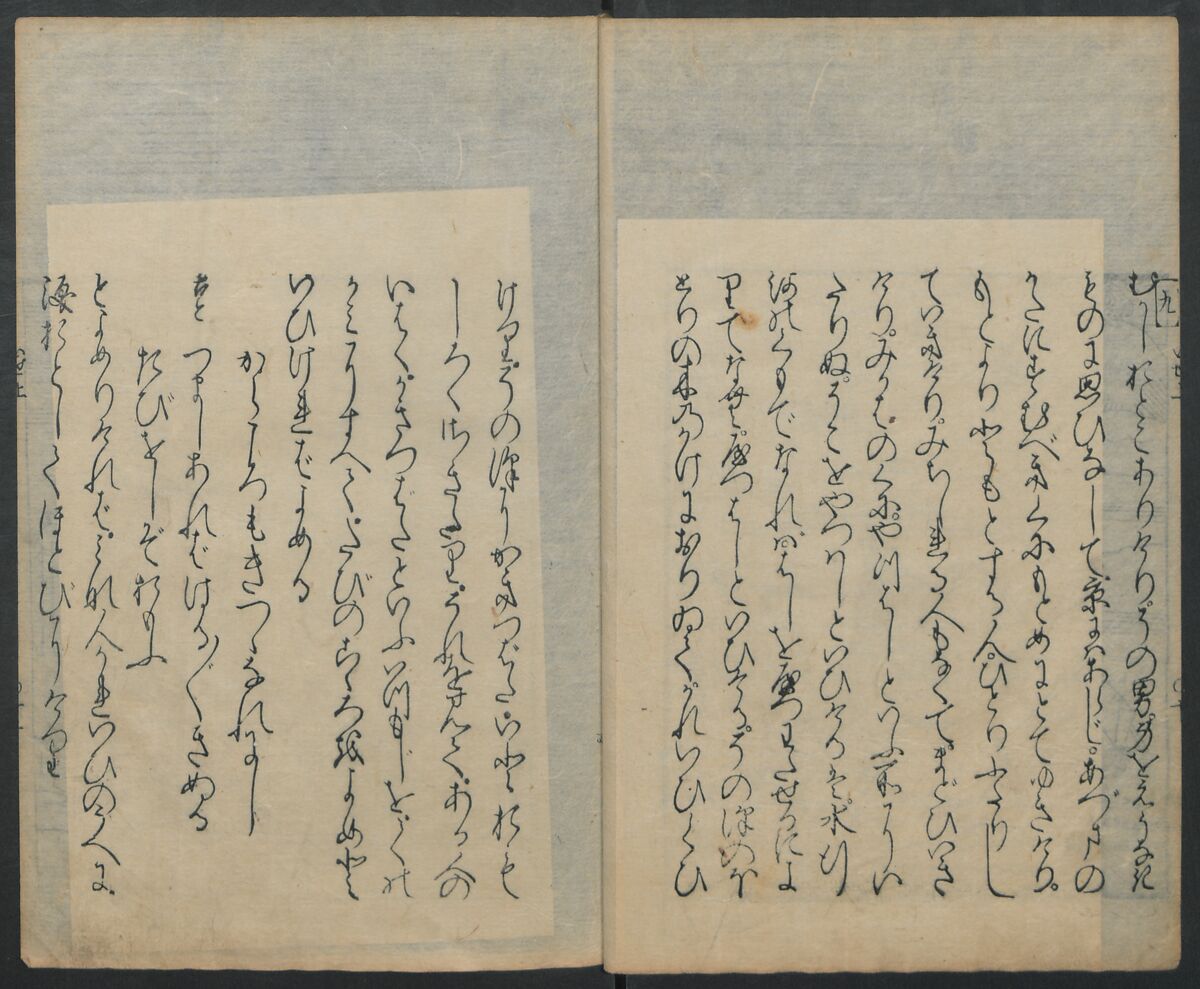 【九】
むかしおとこありけり。その男身をえうなき
ものに思ひなして。京にはあらじ。あづまの
かたにすむべきくにもとめにとてゆきけり。
もとより友とする人。ひとりふたりし
ていきけり。みちしれる人もなくて。まどひいき
けり。みかはのくに。や川はしといふ所にい
たりぬ。そこをやつはしといひけるは。水行
河のくもでなれば。はしを八つわたせるによ
りてなむ。八つはしといひける。その澤のほ
とりの木のかけにおりゐて。かれいひくひ
けり。その澤にかきつばたいとおも
しろくさきたり。それを見て。ある人の
いはく。かきつばたといふいつもじをくの
かみにすへて。たびのこころをよめと
いひければよめる
からころもきつゝなれにし
つましあればはる〴〵きぬる
たびをしぞおもふ
とよめりければ。みな人かれいひのうへに。
涙おとしてほとびにけり